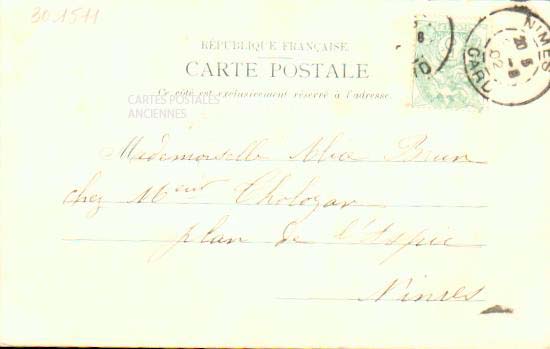 301511
RÉPUBLIQUE FRANÇAISE
CARTE POSTALE
Ce côté est exclusivement réservé à l'adresse
CARTES POSTALES
ANCIENNES
NIMES
20 5
02
GARD
Mademoiselle Brun
chez Mr Thologan
plan de l'Aspic
Nimes